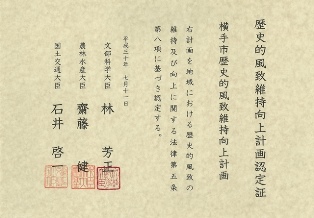 歴史的風致維持向上計画認定証
横手市歴史的風致維持向上計画
右計画を地域における歴史的風致の
維持及び向上に関する法律第五条
第八項に基づき認定する。
平成三十年 七月十一日
文部科学大臣 林 芳正
農林水産大臣 齋藤 健
国土交通大臣 石井 啓一